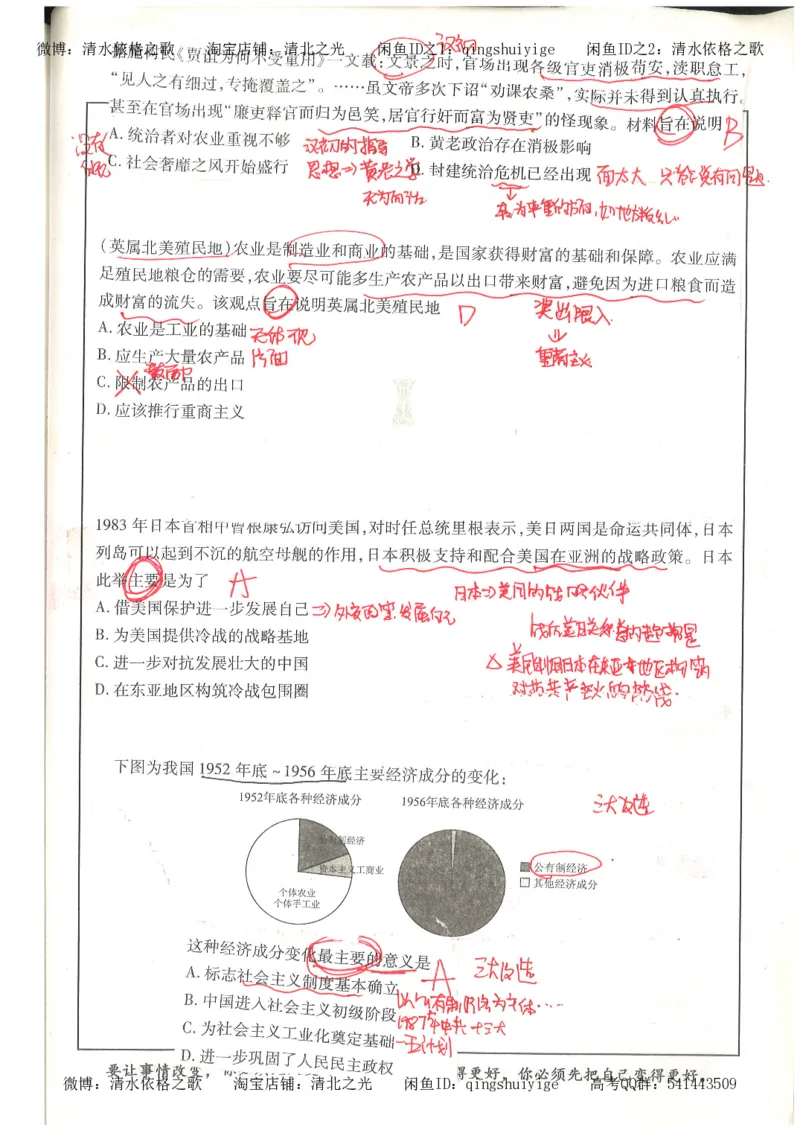 微博：清水依格之歌 淘宝店铺：清北之光 闲鱼ID之1：qingshuiyige 闲鱼ID之2：清水依格之歌
《贾谊为何不受重用》一文载：文景之时，官场出现各级官吏消极苟安，渎职怠工，
“见人之有细过，专掩覆盖之”。……虽文帝多次下诏“劝课农桑”，实际并未得到认真执行。
甚至在官场出现“廉吏释官而归为邑笑，居官行奸而富为贤吏”的怪现象。材料旨在说明 B
A. 统治者对农业重视不够 B. 黄老政治存在消极影响
没有体现
汉初的指导思想⇒黄老之学
无为而治
C. 社会奢靡之风开始盛行 D. 封建统治危机已经出现
(英属北美殖民地)农业是制造业和商业的基础，是国家获得财富的基础和保障。农业应满
足殖民地粮仓的需要，农业要尽可能多生产农产品以出口带来财富，避免因为进口粮食而造
成财富的流失。该观点旨在说明英属北美殖民地 D
A. 农业是工业的基础 无体现
B. 应生产大量农产品 片面
C. 限制农产品的出口
D. 应该推行重商主义
重商主义
1983 年日本首相中曾根康弘访问美国，对时任总统里根表示，美日两国是命运共同体，日本
列岛可以起到不沉的航空母舰的作用，日本积极支持和配合美国在亚洲的战略政策。日本
此举主要是为了 A
日本⇒美国的战略伙伴
A. 借美国保护进一步发展自己
B. 为美国提供冷战的战略基地
C. 进一步对抗发展壮大的中国
D. 在东亚地区构筑冷战包围圈
下图为我国 1952 年底~1956 年底主要经济成分的变化：
1952年底各种经济成分 1956年底各种经济成分
三大改造
公有制经济
资本主义工商业
个体农业
个体手工业
公有制经济
其他经济成分
这种经济成分变化最主要的意义是 A 三大改造
A. 标志社会主义制度基本确立
B. 中国进入社会主义初级阶段
1987年中共十三大
C. 为社会主义工业化奠定基础 一五计划
D. 进一步巩固了人民民主政权
要让事情改变， 得更好，你必须先把自己变得更好。
微博：清水依格之歌 淘宝店铺：清北之光 闲鱼ID：qingshuiyige 高考QQ群：541443509